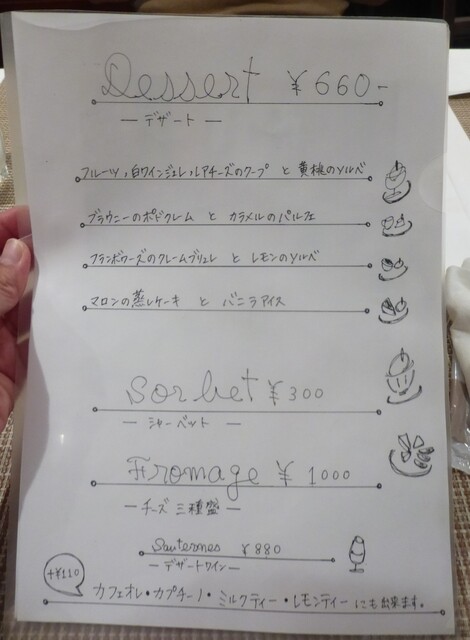 Dessert ¥660-
― デザート ―
フルーツ、白ワインジュレ、レアチーズのクープ と 黄桃のソルベ
ブラウニーのポドクレーム と カラメルのパルフェ
フランボワーズのクレームブリュレ と レモンのソルベ
マロンの蒸しケーキ と バニラアイス
Sorbet ¥300
― シャーベット ―
Fromage ¥1000
― チーズ 三種盛 ―
Sauternes ¥880
― デザートワイン ―
+¥110
カフェオレ・カプチーノ・ミルクティー・レモンティー にも出来ます。